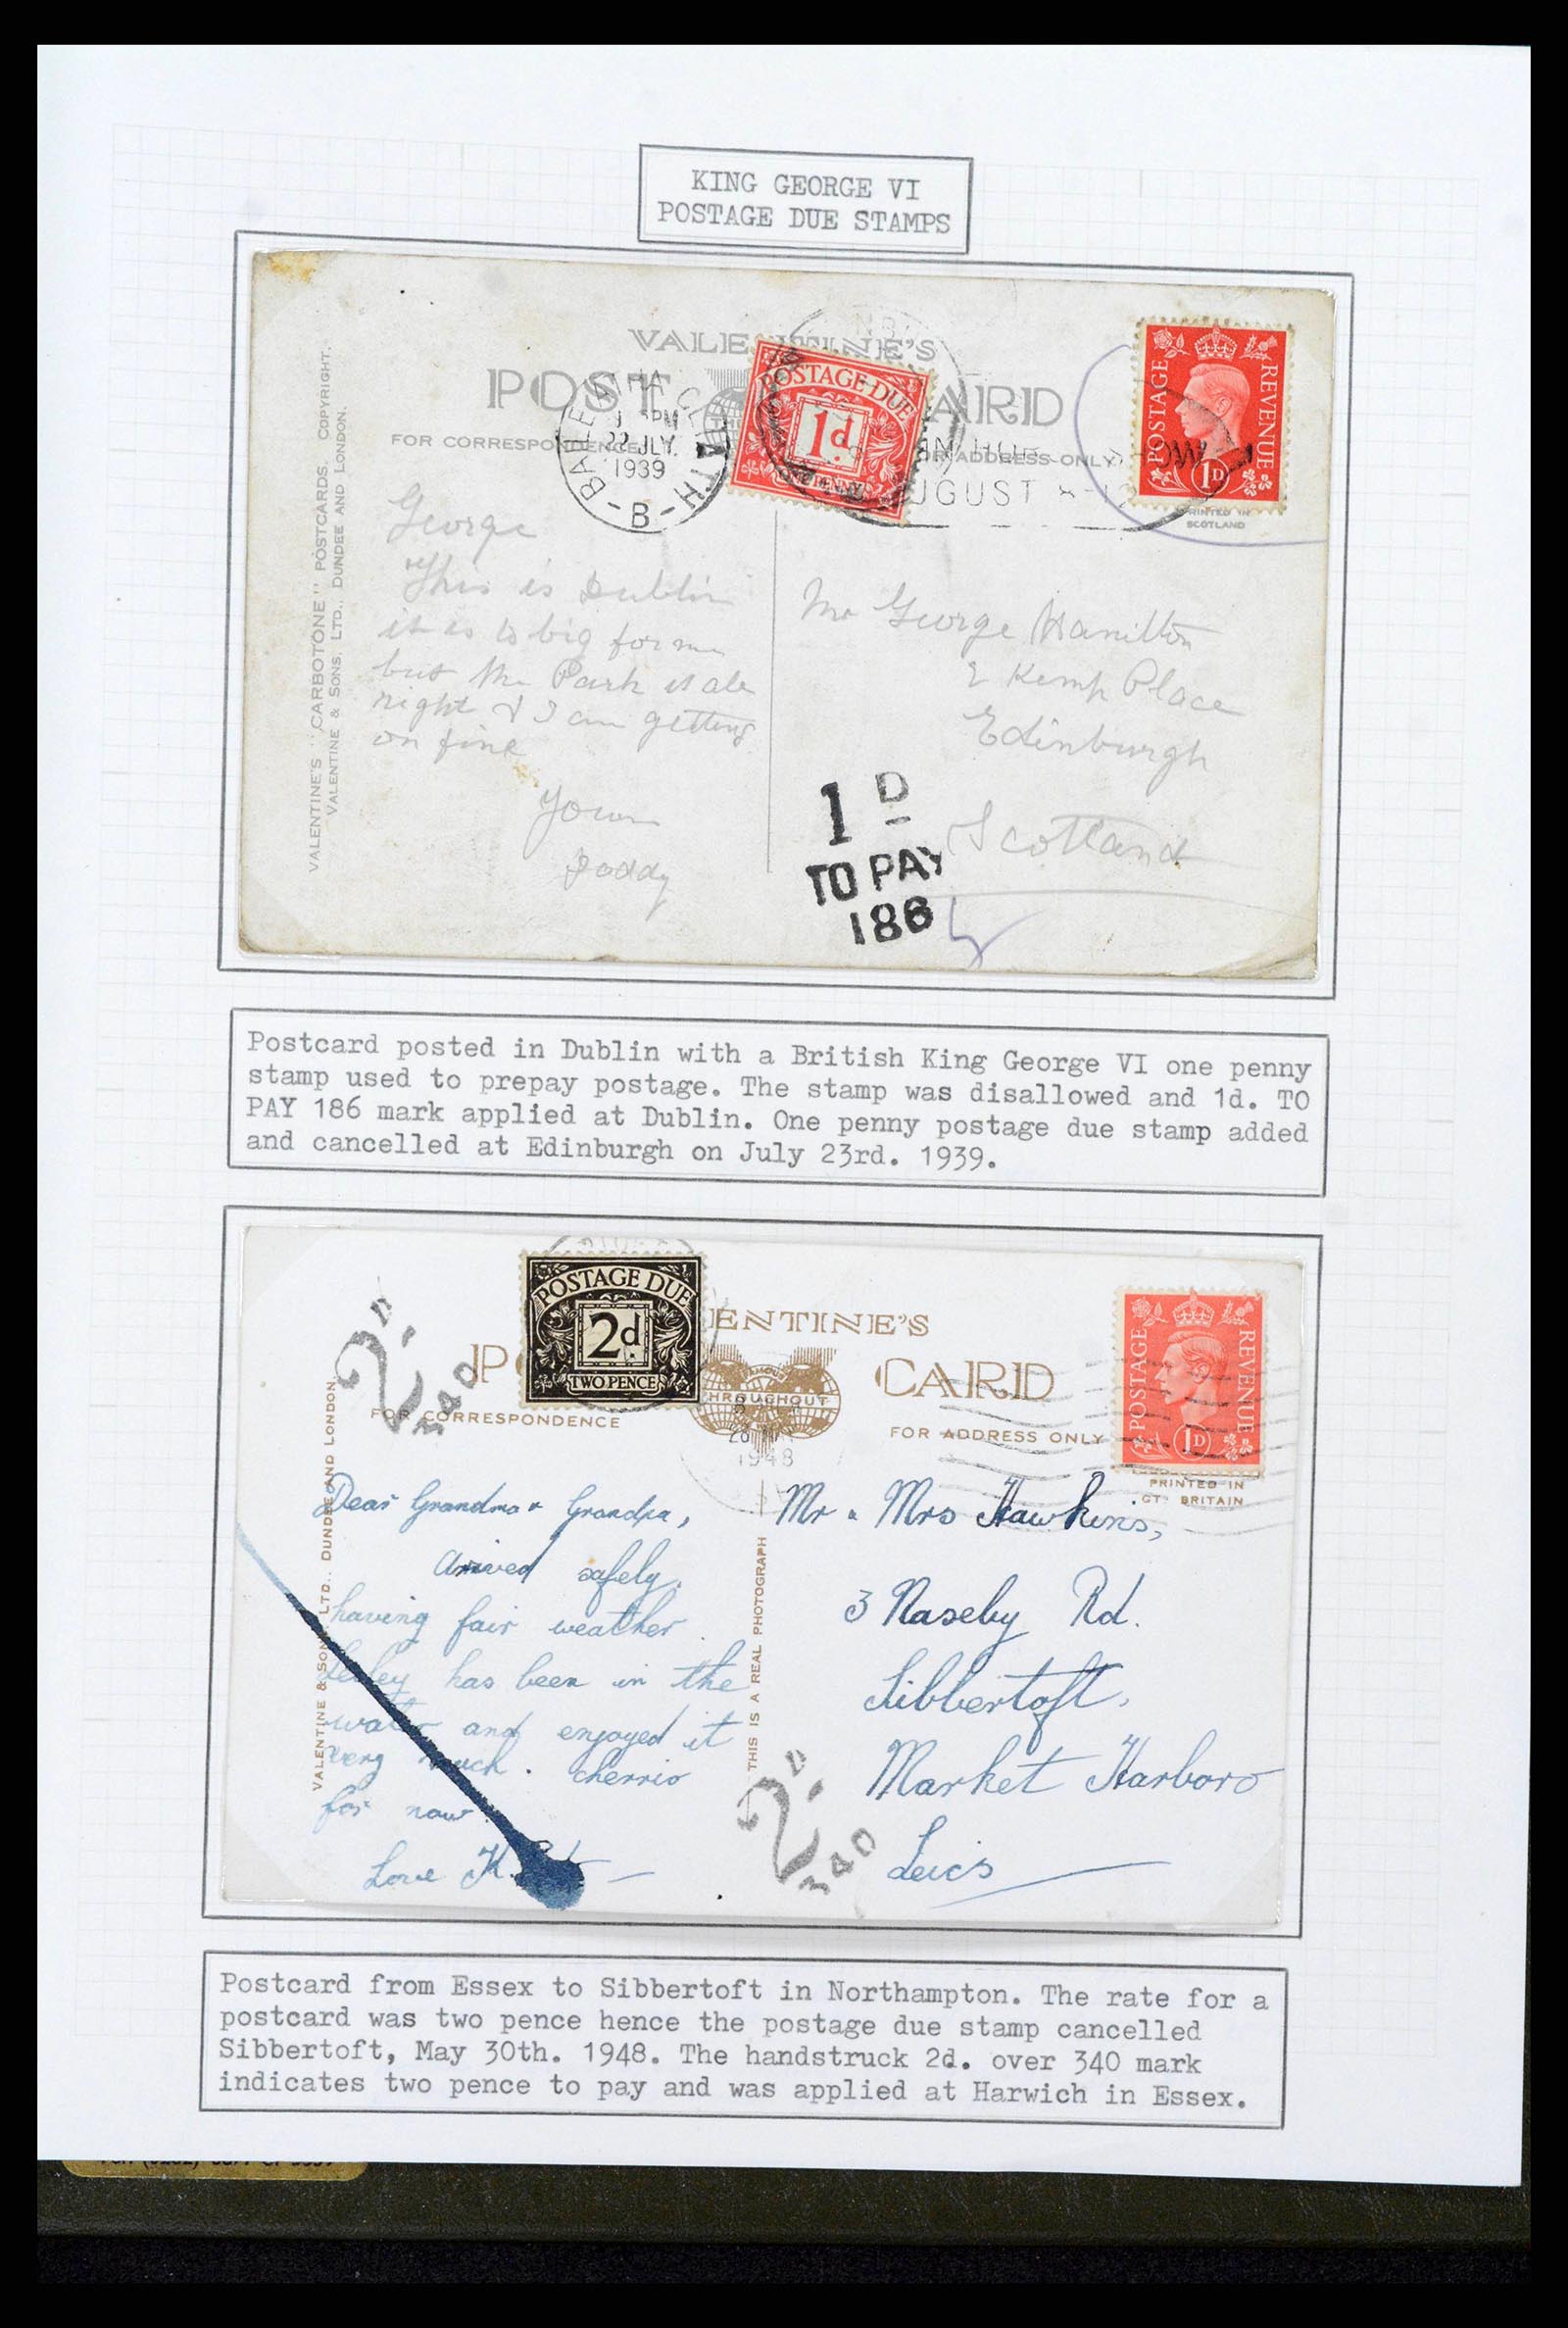 KING GEORGE VI
POSTAGE DUE STAMPS
VALENTINE'S
POST CARD
FOR CORRESPONDENCE
FOR ADDRESS ONLY
BAILE ATHA CLIATH
5PM
22 JLY.
1939
- B -
POSTAGE DUE
1d
ONE PENNY
AUGUST 8-12
SHOW
POSTAGE REVENUE
1D
PRINTED IN
SCOTLAND
VALENTINE'S "CARBOTONE" POSTCARDS. COPYRIGHT.
VALENTINE & SONS, LTD., DUNDEE AND LONDON.
George
This is Dublin
it is to big for me
but the Park is ale
right & I am getting
on fine
Yours
Daddy
Mr George Hamilton
2 Kemp Place
Edinburgh
Scotland
1D
TO PAY
186
Postcard posted in Dublin with a British King George VI one penny
stamp used to prepay postage. The stamp was disallowed and 1d. TO
PAY 186 mark applied at Dublin. One penny postage due stamp added
and cancelled at Edinburgh on July 23rd. 1939.
POSTAGE DUE
2d
TWO PENCE
ENTINE'S
CARD
FAMOUS
THROUGHOUT
FOR CORRESPONDENCE
FOR ADDRESS ONLY
28
1948
POSTAGE REVENUE
1D
PRINTED IN
GT. BRITAIN
2D
340
VALENTINE & SONS, LTD., DUNDEE AND LONDON.
THIS IS A REAL PHOTOGRAPH
Dear Grandma & Grandpa,
Arrived safely.
having fair weather.
Lesley has been in the
water and enjoyed it
very much. cherrio
for now
Love K.
Mr & Mrs Hawkins,
3 Naseby Rd.
Sibbertoft,
Market Harboro
Leics
2D
340
Postcard from Essex to Sibbertoft in Northampton. The rate for a
postcard was two pence hence the postage due stamp cancelled
Sibbertoft, May 30th. 1948. The handstruck 2d. over 340 mark
indicates two pence to pay and was applied at Harwich in Essex.